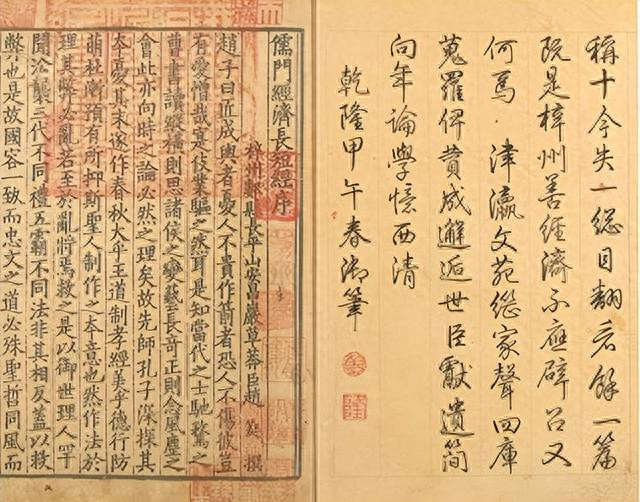 稱十今失一總目翻餘一篇
既是梓州善經濟不應辟召又
何焉津瀛文苑家聲四庫
蒐羅俾贊成邂逅世臣獻遺簡
向年論學憶西清
乾隆甲午春御筆
乾
隆
儒門經濟長短經序
梓州郪縣長平山安昌巖草莽臣趙 蕤 撰
趙子曰匠成輿者憂人不貴作箭者恐人不傷彼豈
有愛憎哉寔伎業驅之然耳是知當代之士馳騖之
曹書讀縱橫則思諸侯之變藝長奇正則念風塵之
會此亦向時之論必然之理矣故先師孔子深探其
本憂其末遂作春秋大乎王道制孝經美乎德行防
萌杜漸預有所抑斯聖人制作之本意也然作法於
理其弊必亂若至於亂將焉救之是以御世理人罕
聞沿襲三代不同禮五霸不同法非其相反蓋以救
弊也是故國容一致而忠文之道必殊聖哲同風而